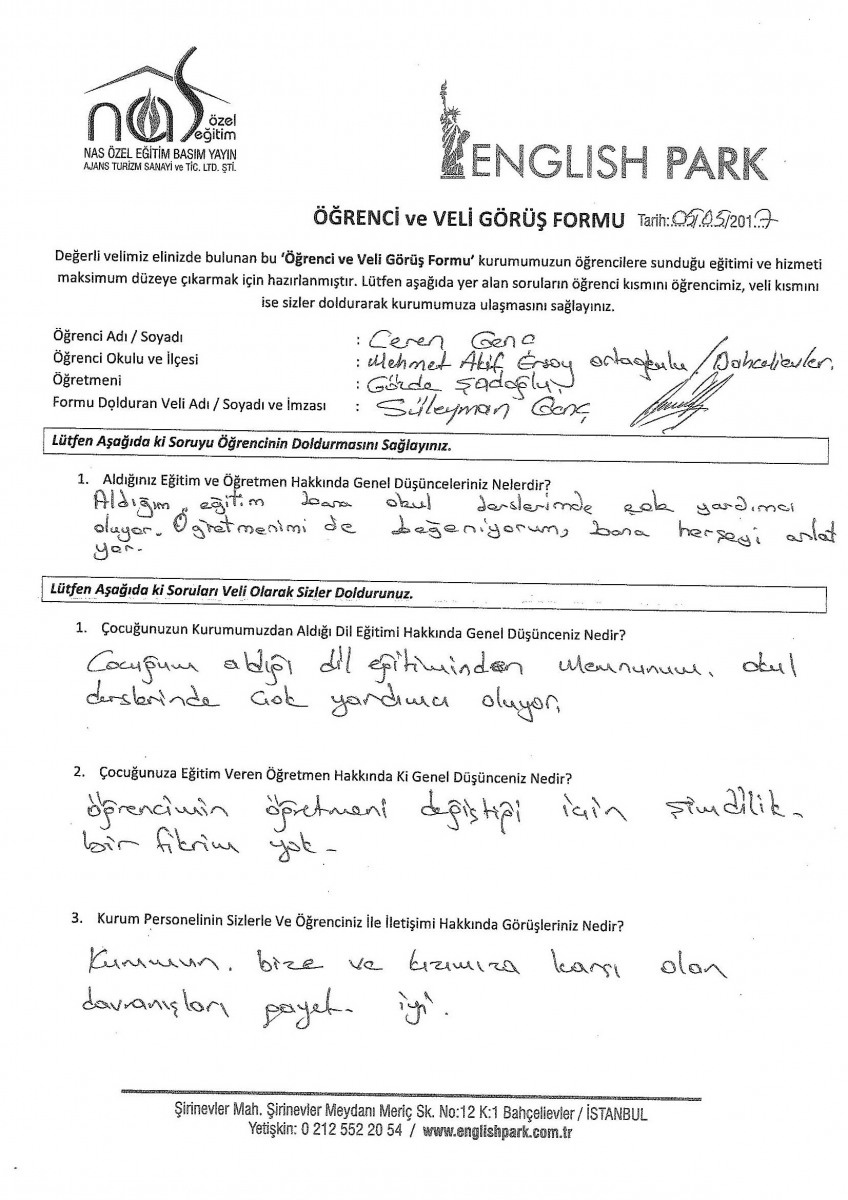 nas özel eğitim
NAS ÖZEL EĞİTİM BASIM YAYIN
AJANS TURİZM SANAYİ ve TİC. LTD. ŞTİ.
ENGLISH PARK
ÖĞRENCİ ve VELİ GÖRÜŞ FORMU Tarih:05/05/2017
Değerli velimiz elinizde bulunan bu ‘Öğrenci ve Veli Görüş Formu’ kurumumuzun öğrencilere sunduğu eğitimi ve hizmeti
maksimum düzeye çıkarmak için hazırlanmıştır. Lütfen aşağıda yer alan soruların öğrenci kısmını öğrencimiz, veli kısmını
ise sizler doldurarak kurumumuza ulaşmasını sağlayınız.
Öğrenci Adı / Soyadı : Ceren Genc
Öğrenci Okulu ve İlçesi : Mehmet Akif Ersoy ortaokulu / Bahcelievler
Öğretmeni : Gözde Şadoğlu
Formu Dolduran Veli Adı / Soyadı ve İmzası : Süleyman Genç
Lütfen Aşağıda ki Soruyu Öğrencinin Doldurmasını Sağlayınız.
1. Aldığınız Eğitim ve Öğretmen Hakkında Genel Düşünceleriniz Nelerdir?
Aldığım eğitim bana okul derslerimde çok yardımcı
oluyor. Öğretmenimi de beğeniyorum, bana herşeyi anlat
yor.
Lütfen Aşağıda ki Soruları Veli Olarak Sizler Doldurunuz.
1. Çocuğunuzun Kurumumuzdan Aldığı Dil Eğitimi Hakkında Genel Düşünceniz Nedir?
Cocuğum aldığı dil eğitiminden memnunum. okul
derslerinde cok yardımcı oluyor.
2. Çocuğunuza Eğitim Veren Öğretmen Hakkında Ki Genel Düşünceniz Nedir?
öğrencimin öğretmeni değiştiği için şimdilik
bir fikrim yok-
3. Kurum Personelinin Sizlerle Ve Öğrenciniz İle İletişimi Hakkında Görüşleriniz Nedir?
Kurumun. bize ve kızımıza karşı olan
davranışları gayet iyi.
Şirinevler Mah. Şirinevler Meydanı Meriç Sk. No:12 K:1 Bahçelievler / İSTANBUL
Yetişkin: 0 212 552 20 54 / www.englishpark.com.tr